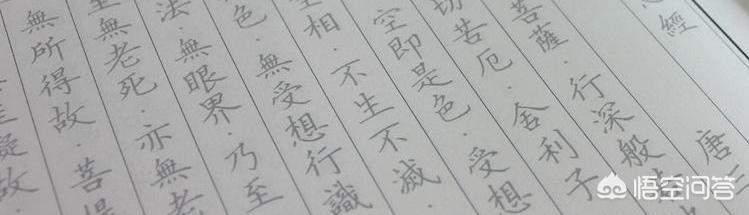 心經 唐
菩薩·行深般
切苦厄·舍利子
空即是色·受想
相·不生不滅·
色·無受想行識
法·無眼界·乃至
無老死·亦無老
無所得故·菩提
礙故·
悟空问答